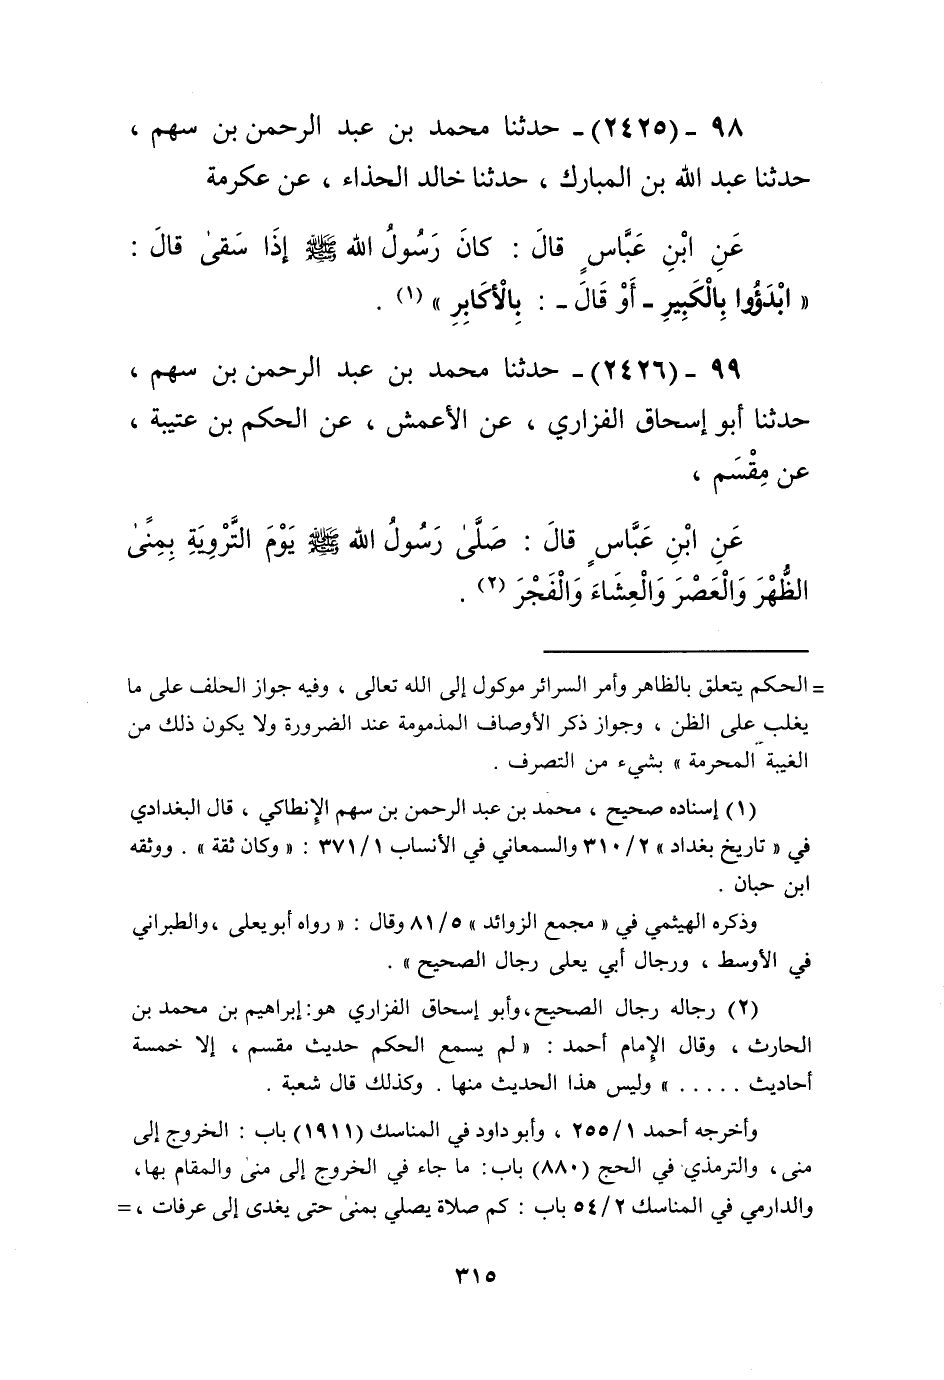 ٩٨ - (٢٤٢٥) - حدثنا محمد بن عبد الرحمن بن سهم ،
حدثنا عبد الله بن المبارك ، حدثنا خالد الحذاء ، عن عكرمة
عَنِ ابْنِ عَبَّاسٍ قالَ : كانَ رَسُولُ الله ﷺ إِذَا سَقىٰ قالَ :
« ابْدَؤُوا بِالْكَبِيرِ - أَوْ قَالَ - : بِالْأَكَابِرِ » (١) .
٩٩ - (٢٤٢٦) - حدثنا محمد بن عبد الرحمن بن سهم ،
حدثنا أبو إسحاق الفزاري ، عن الأعمش ، عن الحكم بن عتيبة ،
عن مِقْسَم ،
عَنِ ابْنِ عَبَّاسٍ قالَ : صَلَّىٰ رَسُولُ الله ﷺ يَوْمَ التَّرْوِيَةِ بِمِنًىٰ
الظُّهْرَ وَالْعَصْرَ وَالْعِشَاءَ وَالْفَجْرَ (٢) .
= الحكم يتعلق بالظاهر وأمر السرائر موكول إلى الله تعالى ، وفيه جواز الحلف على ما
يغلب على الظن ، وجواز ذكر الأوصاف المذمومة عند الضرورة ولا يكون ذلك من
الغيبة المحرمة » بشيء من التصرف .
(١) إسناده صحيح ، محمد بن عبد الرحمن بن سهم الإنطاكي ، قال البغدادي
في « تاريخ بغداد » ٣١٠/٢ والسمعاني في الأنساب ٣٧١/١ : « وكان ثقة » . ووثقه
ابن حبان .
وذكره الهيثمي في « مجمع الزوائد » ٨١/٥ وقال : « رواه أبو يعلى ، والطبراني
في الأوسط ، ورجال أبي يعلى رجال الصحيح » .
(٢) رجاله رجال الصحيح، وأبو إسحاق الفزاري هو: إبراهيم بن محمد بن
الحارث ، وقال الإمام أحمد : « لم يسمع الحكم حديث مقسم ، إلا خمسة
أحاديث ..... » وليس هذا الحديث منها . وكذلك قال شعبة .
وأخرجه أحمد ٢٥٥/١ ، وأبو داود في المناسك (١٩١١) باب : الخروج إلى
منى ، والترمذي في الحج (٨٨٠) باب : ما جاء في الخروج إلى منىٰ والمقام بها،
والدارمي في المناسك ٥٤/٢ باب : كم صلاة يصلي بمنىٰ حتى يغدى إلى عرفات ، =
٣١٥